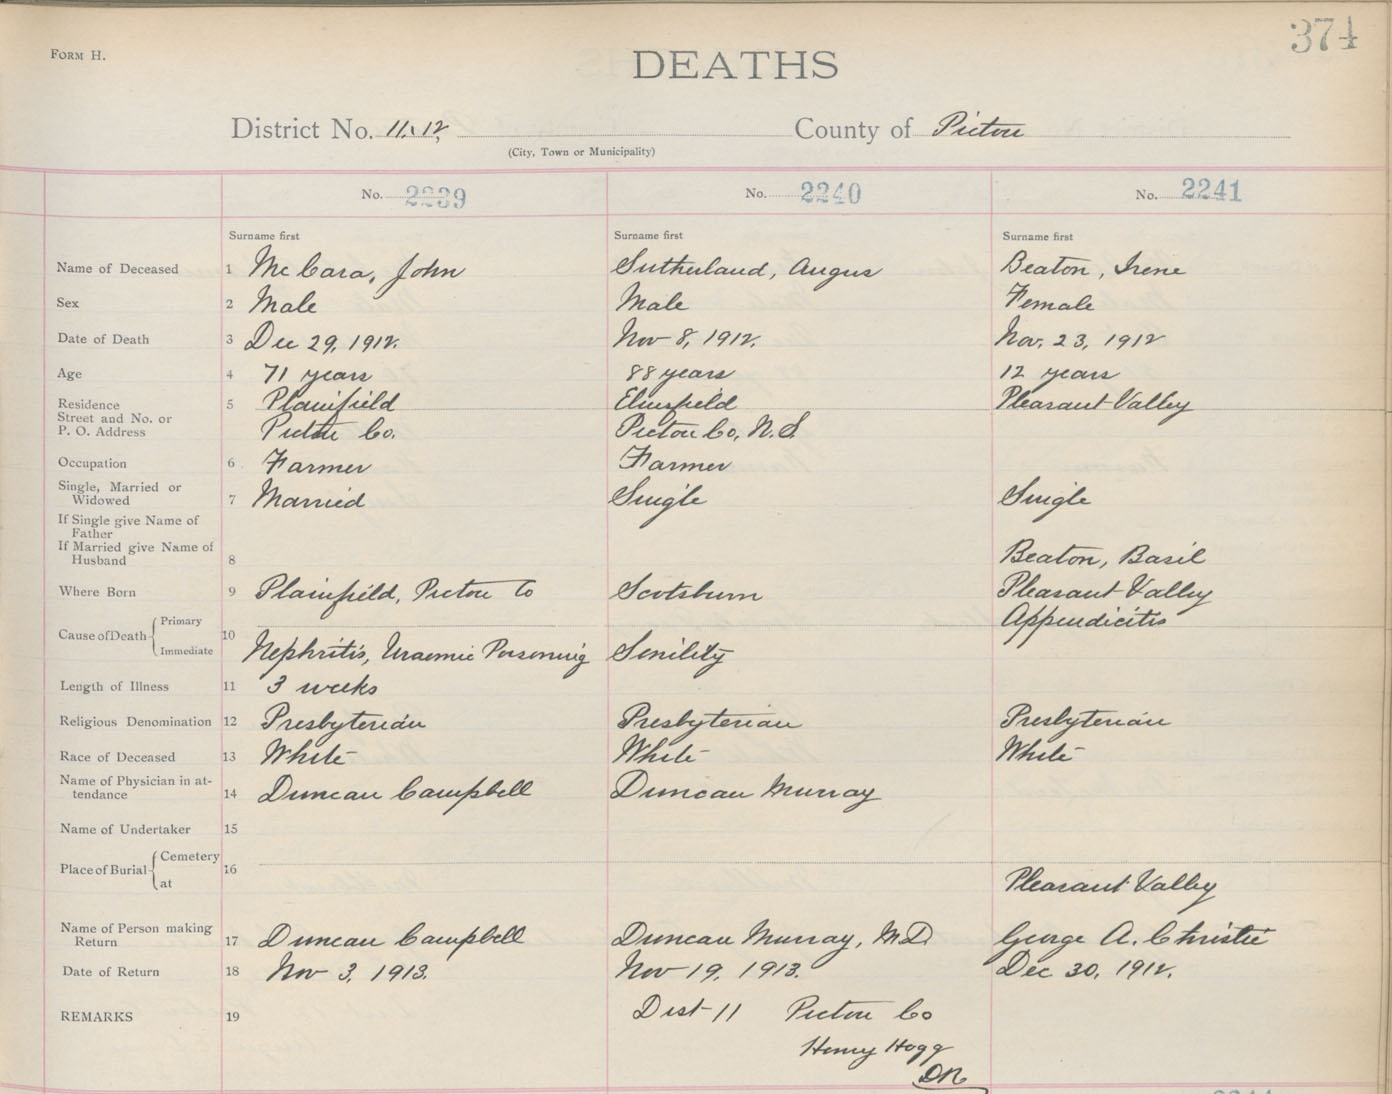 374
FORM H.
DEATHS
District No. 11, 12, County of Pictou
(City, Town or Municipality)
No. 2239 No. 2240 No. 2241
Surname first Surname first Surname first
Name of Deceased 1 McCara, John Sutherland, Angus Beaton, Irene
Sex 2 Male Male Female
Date of Death 3 Dec 29, 1912. Nov 8, 1912. Nov. 23, 1912
Age 4 71 years 88 years 12 years
Residence 5 Plainfield Elmsfield Pleasant Valley
Street and No. or
P. O. Address Pictou Co. Pictou Co, N.S.
Occupation 6 Farmer Farmer
Single, Married or
Widowed 7 Married Single Single
If Single give Name of
Father
If Married give Name of
Husband 8 Beaton, Basil
Where Born 9 Plainfield, Pictou Co Scotsburn Pleasant Valley
Cause of Death Primary Appendicitis
10
Immediate Nephritis, Uraemic Poisoning Senility
Length of Illness 11 3 weeks
Religious Denomination 12 Presbyterian Presbyterian Presbyterian
Race of Deceased 13 White White White
Name of Physician in at-
tendance 14 Duncan Campbell Duncan Murray
Name of Undertaker 15
Place of Burial Cemetery 16
at Pleasant Valley
Name of Person making
Return 17 Duncan Campbell Duncan Murray, M.D. George A. Christie
Date of Return 18 Nov 3, 1913. Nov 19, 1913. Dec 30, 1912.
REMARKS 19 Dist 11 Pictou Co
Henry Hogg
DR